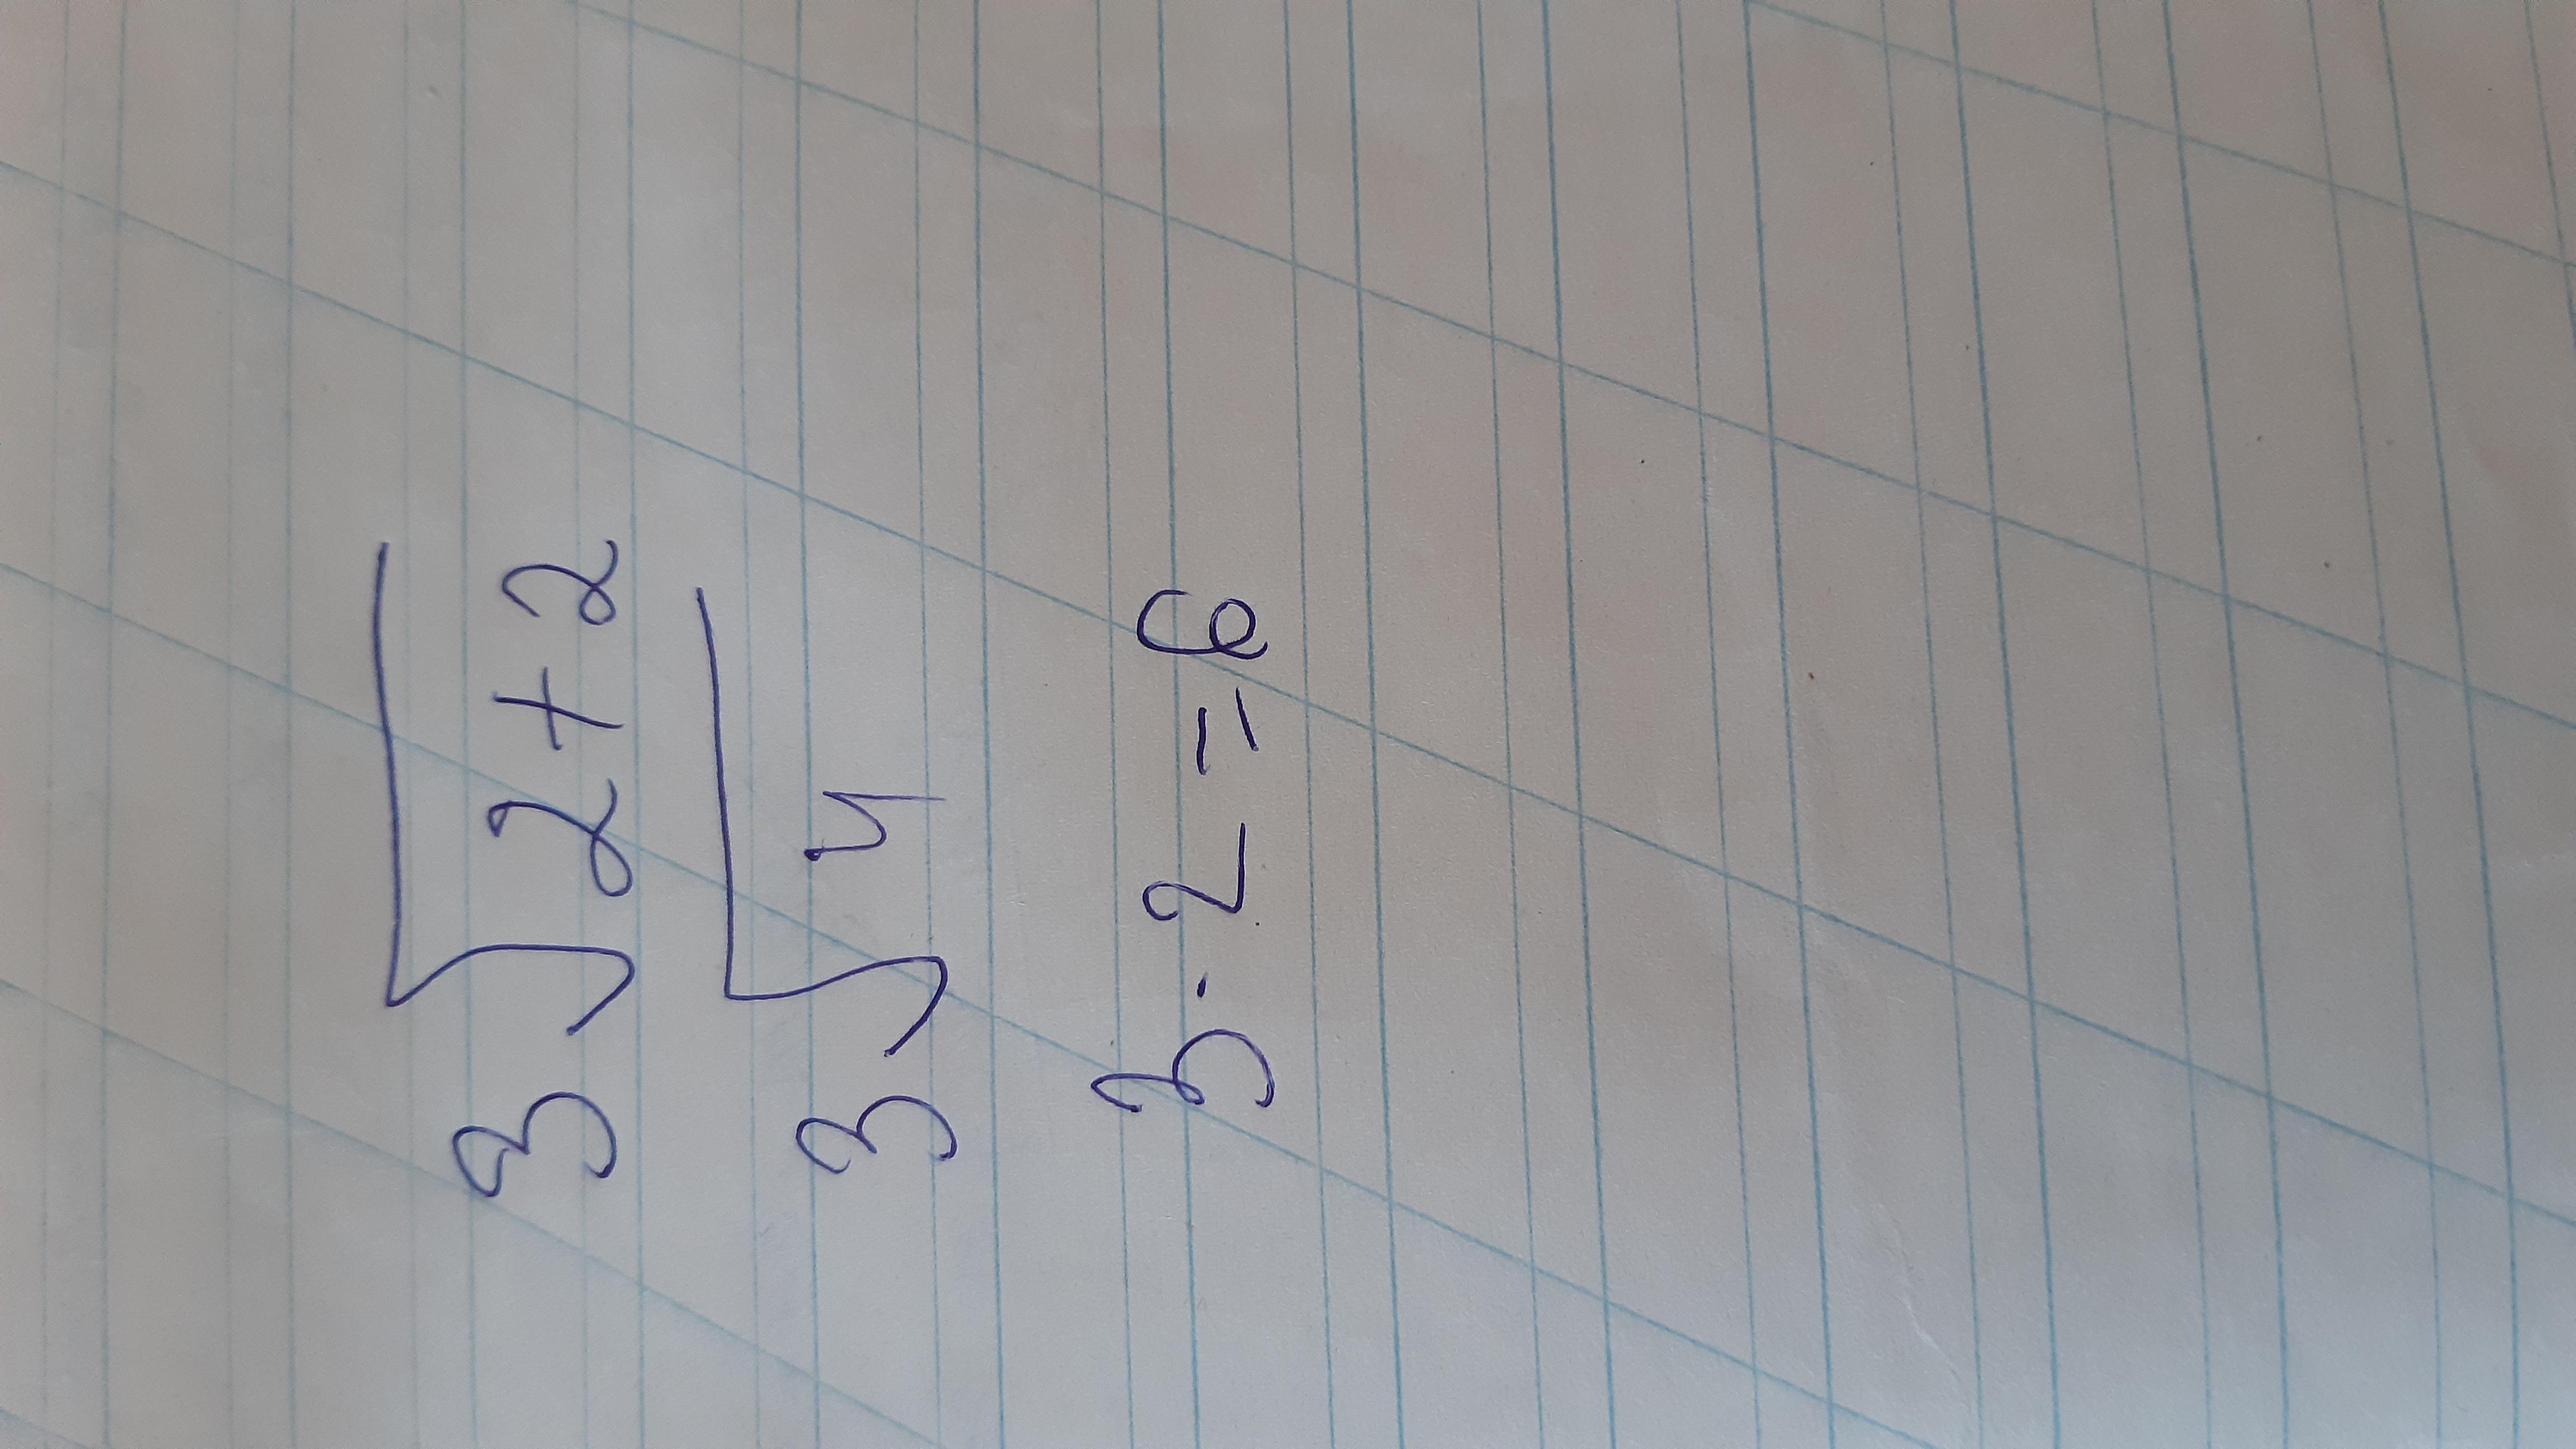 3√2+2
3√4
3·2=6